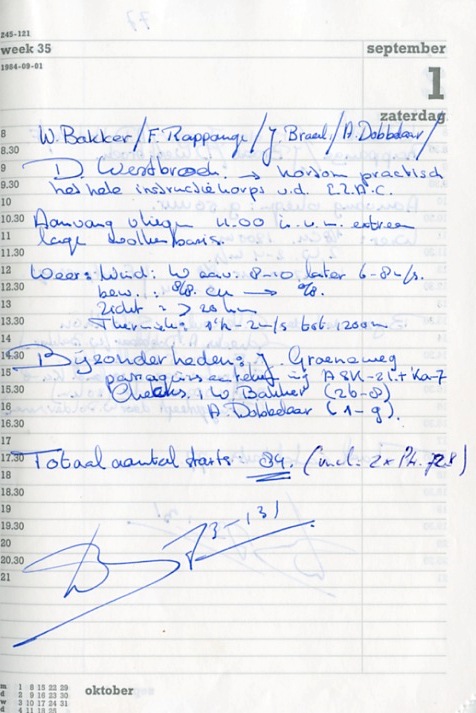 245-121
week 35
september
1984-09-01
1
zaterdag
8 W. Bakker / F. Rappange / J. Braed. / A. Dobbelaar /
8.30
9 D. Westbroek. → kortom practisch
9.30 het hele instructiekorps v.d. E.Z.A.C.
10
10.30 Aanvang vliegen 11.00 u. i.v.m. extreem
11 lage wolkenbasis.
11.30
12 Weer: Wind: W 8-10 later 6-8 m/s.
12.30 bew. : 8/8 cu → /8.
13 Zicht : > 20 km
13.30 Thermiek: 1½ - 2 m/s tot 1200 m
14
14.30 Bijzonderheden: J. Groeneweg
15 passagiers ASK-21 + Ka-7
15.30 Checks: W. Bakker (2b-8)
16 A. Dobbelaar (1-9).
16.30
17
17.30 Totaal aantal starts: 84. (incl. 2x PH. 728)
18
18.30
19
19.30
20
20.30
21
oktober
m 1 8 15 22 29
d 2 9 16 23 30
w 3 10 17 24 31
d 4 11 18 25